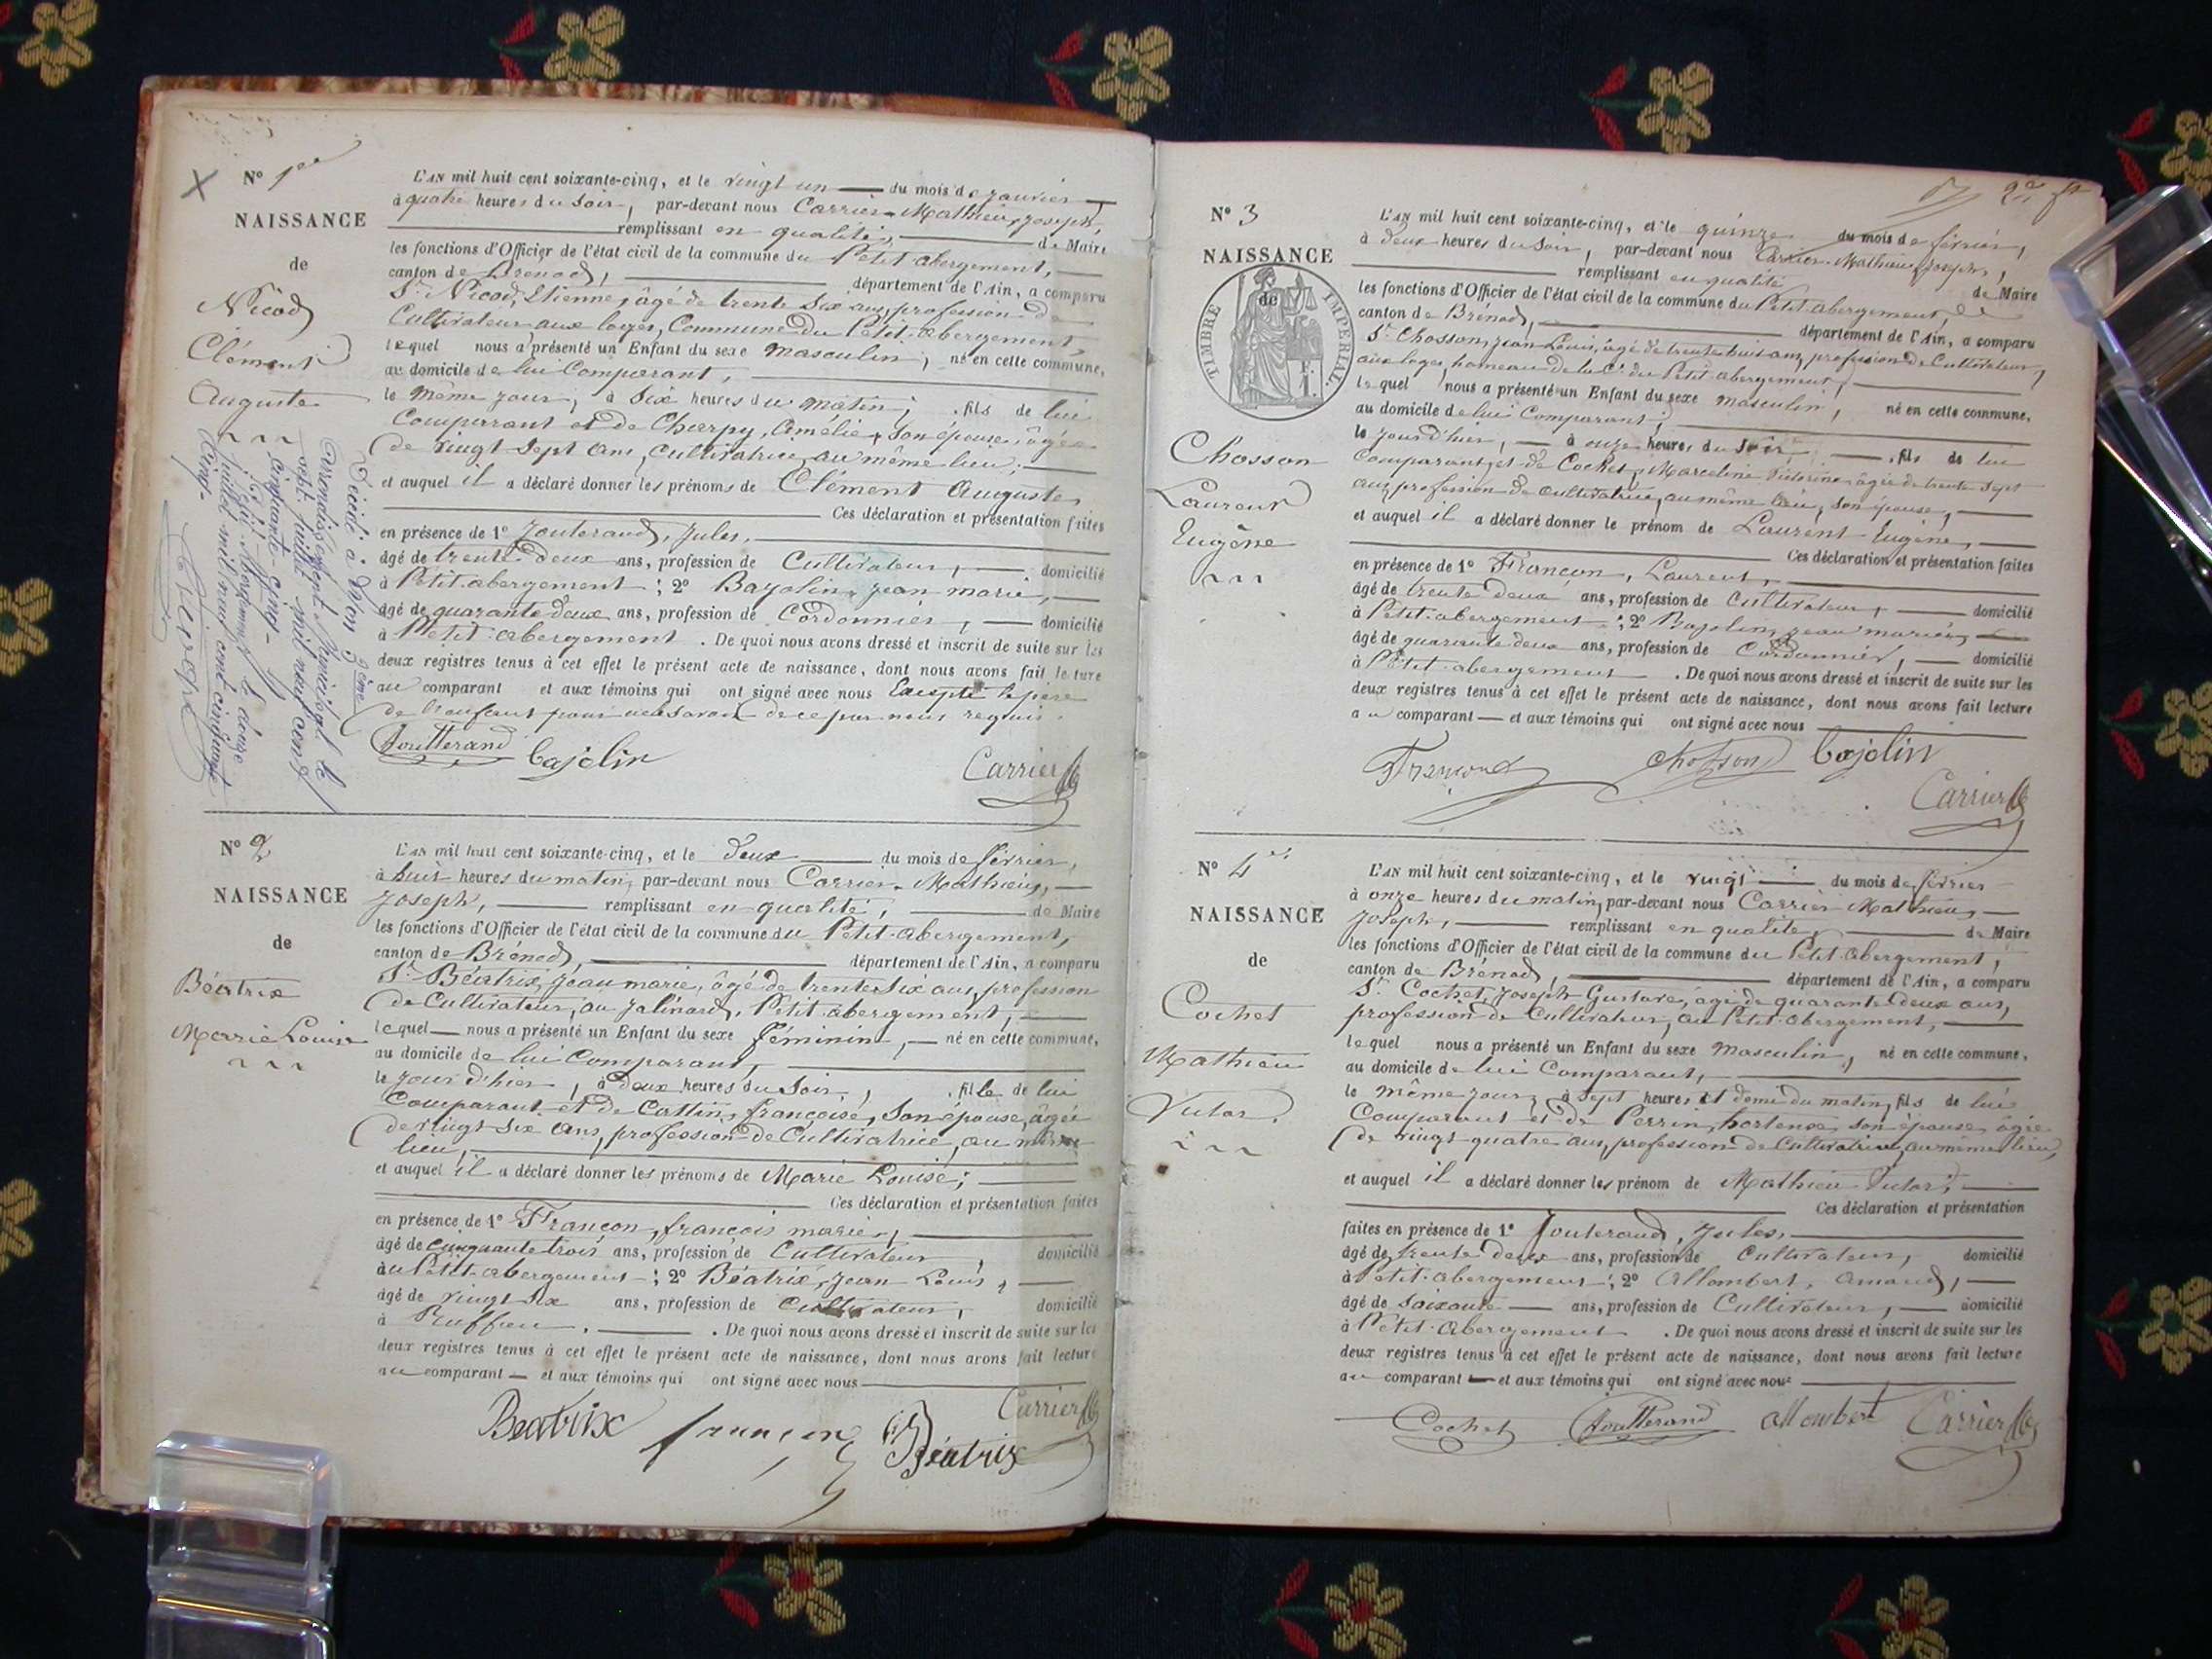 N° 1er
NAISSANCE
de
Nicod
Clément
Auguste
Décédé à Dijon 3ème
arrondissement Municipal le
sept juillet mil neuf cent
cinquante-cinq.
Petit-Abergement le douze
juillet mil neuf cent cinquante
cinq.
L'AN mil huit cent soixante-cinq, et le vingt un du mois de janvier
à quatre heures du soir, par-devant nous Carrier Mathieu, Joseph,
remplissant en qualité, de Maire
les fonctions d'Officier de l'état civil de la commune du Petit-abergement,
canton de Brénod, département de l'Ain, a comparu
Sr. Nicod, Etienne, âgé de trente six ans, profession de
Cultivateur aux loges, Commune du Petit-abergement
lequel nous a présenté un Enfant du sexe masculin, né en cette commune,
au domicile de lui Comparant,
le même jour, à six heures du matin, fils de lui
Comparant et de Charpy, Amélie, son épouse, âgée
de vingt sept ans, Cultivatrice, au même lieu;
et auquel il a déclaré donner les prénoms de Clément Auguste,
Ces déclaration et présentation faites
en présence de 1° Jouterand, Jules,
âgé de trente deux ans, profession de Cultivateur, domicilié
à Petit-abergement; 2° Bajolin, jean marie,
âgé de quarante deux ans, profession de Cordonnier, domicilié
à Petit-abergement. De quoi nous avons dressé et inscrit de suite sur les
deux registres tenus à cet effet le présent acte de naissance, dont nous avons fait lecture
au comparant et aux témoins qui ont signé avec nous Excepté le père
de l'enfant pour ne savoir de ce par nous requis.
Joutterand Bajolin
Carrier
N° 2
NAISSANCE
de
Béatrix
Marie Louise
L'AN mil huit cent soixante-cinq, et le deux du mois de février,
à huit heures du matin, par-devant nous Carrier Mathieu,
Joseph, remplissant en qualité, de Maire
les fonctions d'Officier de l'état civil de la commune du Petit-abergement,
canton de Brénod, département de l'Ain, a comparu
Sr. Béatrix, jean marie, âgé de trente six ans, profession
de Cultivateur, au Jalinard, Petit-abergement,
lequel nous a présenté un Enfant du sexe féminin, né en cette commune,
au domicile de lui Comparant,
le jour d'hier, à deux heures du soir, fille de lui
Comparant et de Cattin, françoise, son épouse, âgée
de vingt six ans, profession de Cultivatrice, au même
lieu,
et auquel il a déclaré donner les prénoms de Marie Louise;
Ces déclaration et présentation faites
en présence de 1° Françon, françois marie,
âgé de cinquante trois ans, profession de Cultivateur, domicilié
au Petit-abergement; 2° Béatrix, Jean Louis,
âgé de vingt six ans, profession de Cultivateur, domicilié
à Ruffieu. De quoi nous avons dressé et inscrit de suite sur les
deux registres tenus à cet effet le présent acte de naissance, dont nous avons fait lecture
au comparant et aux témoins qui ont signé avec nous
Carrier
Beatrix françon Béatrix
2e ft
N° 3
NAISSANCE
de
TIMBRE IMPERIAL.
Chosson
Laurent
Eugène
L'AN mil huit cent soixante-cinq, et le quinze du mois de février,
à deux heures du soir, par-devant nous Carrier Mathieu, Joseph,
remplissant en qualité de Maire
les fonctions d'Officier de l'état civil de la commune du Petit-abergement,
canton de Brénod, département de l'Ain, a comparu
Sr. Chosson, jean Louis, âgé de trente huit ans, profession de Cultivateur,
aux loges, hameau de la Ce. du Petit-abergement,
lequel nous a présenté un Enfant du sexe masculin, né en cette commune,
au domicile de lui Comparant,
le jour d'hier, à onze heures du soir, fils de lui
Comparant, et de Cochet, Marceline Victorine, âgée de trente sept
ans, profession de cultivatrice, au même lieu, son épouse,
et auquel il a déclaré donner le prénom de Laurent Eugène,
Ces déclaration et présentation faites
en présence de 1° Françon, Laurent,
âgé de trente deux ans, profession de Cultivateur, domicilié
à Petit-abergement; 2° Bajolin, jean marie,
âgé de quarante deux ans, profession de Cordonnier, domicilié
à Petit-abergement. De quoi nous avons dressé et inscrit de suite sur les
deux registres tenus à cet effet le présent acte de naissance, dont nous avons fait lecture
au comparant et aux témoins qui ont signé avec nous
Chosson Bajolin
Carrier
N° 4
NAISSANCE
de
Cochet
Mathieu
Victor
L'AN mil huit cent soixante-cinq, et le vingt du mois de février
à onze heures du matin, par-devant nous Carrier Mathieu,
Joseph, remplissant en qualité, de Maire
les fonctions d'Officier de l'état civil de la commune du Petit-abergement,
canton de Brénod, département de l'Ain, a comparu
Sr. Cochet, Joseph Gustave, âgé de quarante deux ans,
profession de Cultivateur, au Petit-abergement,
lequel nous a présenté un Enfant du sexe masculin, né en cette commune,
au domicile de lui Comparant,
le même jour, à sept heures et demi du matin, fils de lui
Comparant et de Perrin, hortense, son épouse, âgée
de vingt quatre ans, profession de Cultivatrice, au même lieu,
et auquel il a déclaré donner les prénom de Mathieu Victor,
Ces déclaration et présentation
faites en présence de 1° Jouterand, Jules,
âgé de trente deux ans, profession de Cultivateur, domicilié
à Petit-abergement; 2° Allombert, Amand,
âgé de soixante ans, profession de Cultivateur, domicilié
à Petit-Abergement. De quoi nous avons dressé et inscrit de suite sur les
deux registres tenus à cet effet le présent acte de naissance, dont nous avons fait lecture
au comparant et aux témoins qui ont signé avec nous
Cochet Joutterand allombert Carrier